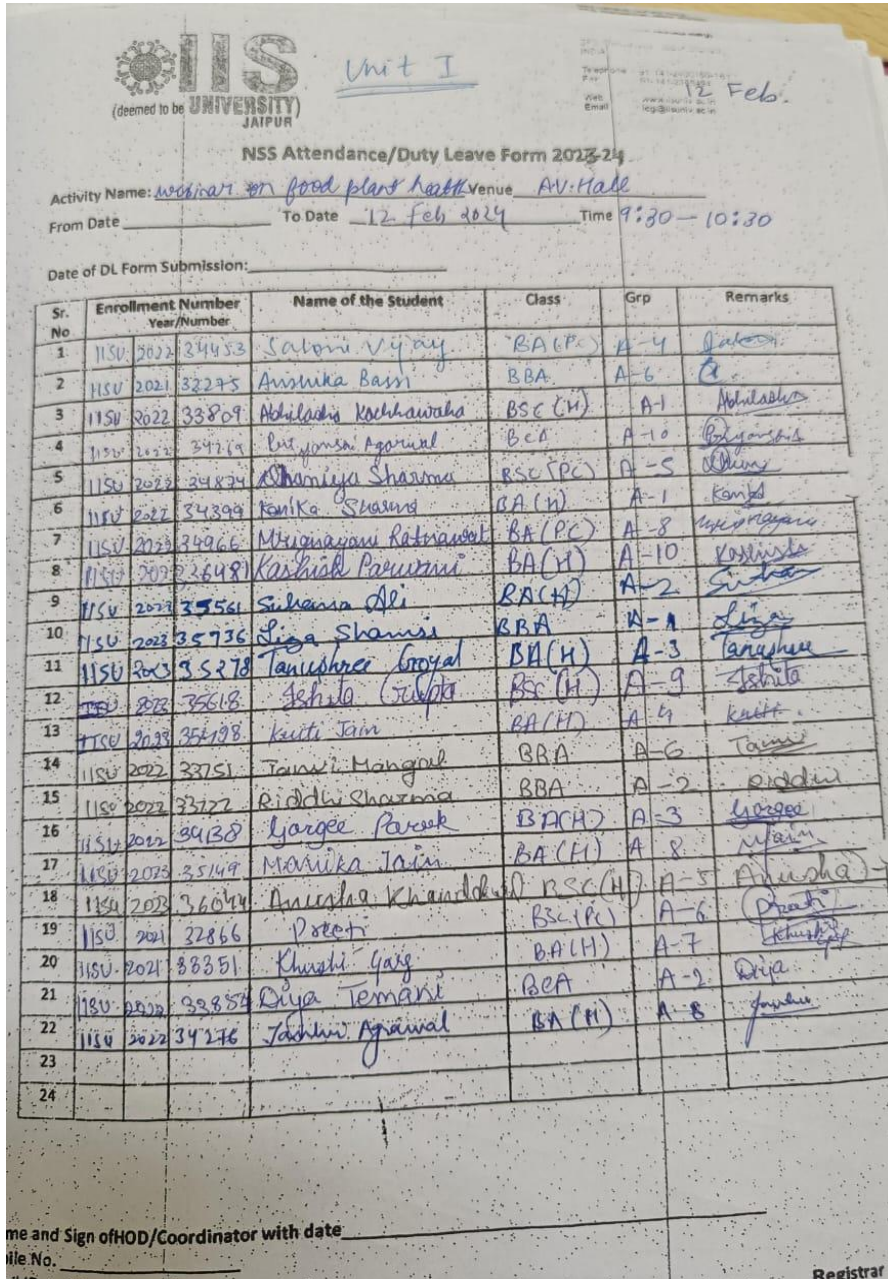 IIS
(deemed to be UNIVERSITY)
JAIPUR
Unit I
Telephone
Fax
Web
Email
12 Feb.
NSS Attendance/Duty Leave Form 2023-24
Activity Name: Webinar on food plant health Venue AV. Hall
From Date To Date 12 Feb 2024 Time 9:30 - 10:30
Date of DL Form Submission:
Sr. No Enrollment Number Year/Number Name of the Student Class Grp Remarks
1 IISU 2022 34453 Saloni Vijay BA(PC) A-4 Saloni
2 IISU 2021 32275 Anshika BBA A-6
3 IISU 2022 33809 Abhilasha Kachhawaha BSC (H) A-1 Abhilasha
4 IISU 2022 34269 Agarwal BCA A-10
5 IISU 2022 34874 Dhaniya Sharma BSC(PC) A-5
6 IISU 2022 34399 Kanika Sharma BA(H) A-1
7 IISU 2023 34966 Mrignayani Ratnawat BA(PC) A-8 Mrignayani
8 IISU 36481 Kashish BA(H) A-10
9 IISU 2023 35561 Ali BA(H) A-2
10 IISU 2023 35736 Liza Shamsi BBA A-1 Liza
11 IISU 2023 35278 Tanushree Goyal BA(H) A-3 Tanushree
12 2023 35618 Ishita Gupta BSC (H) A-9 Ishita
13 IISU 2023 Kriti Jain BA(H) A-4 Kriti
14 IISU 2022 33751 Tanvi Mangal BBA A-6 Tanvi
15 IISU 2022 Riddhi Sharma BBA A-2 Riddhi
16 IISU 2022 34138 Gargee Pareek BA(H) A-3 Gargee
17 IISU 2023 35149 Manika Jain BA(H) A 8 Mjain
18 IISU 2023 36044 Anusha BSC(H) A-5 Anusha
19 IISU 2021 32866 Preeti BSC(PC) A-6 Preeti
20 IISU 2021 33351 Khushi Garg BA(H) A-7 Khushi
21 IISU 2022 33854 Diya Temani BCA A-2 Diya
22 IISU 2022 34276 Agrawal BA(H) A-8
23
24
me and Sign ofHOD/Coordinator with date
ile No.
Registrar